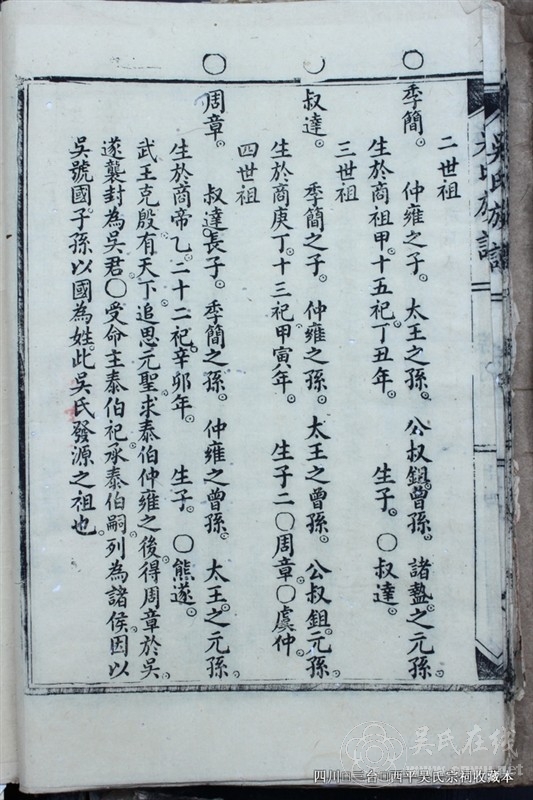 吳氏族譜
二世祖
○季簡。 仲雍之子。 太王之孫。 公叔鉏曾孫。 諸盩之元孫。
生於商祖甲。十五祀丁丑年。 生子。○叔達。
三世祖
○叔達。 季簡之子。 仲雍之孫。 太王之曾孫。 公叔鉏元孫。
生於商庚丁。十三祀甲寅年。 生子二○周章○虞仲。
四世祖
○周章。 叔達長子。 季簡之孫。 仲雍之曾孫。 太王之元孫。
生於商帝乙。二十二祀辛卯年。 生子。○熊遂。
武王克殷有天丁追思元聖。求泰伯仲雍之後。得周章於吳。
遂襲封為吳君。○受命主泰伯祀。承泰伯嗣。列為諸侯因以
吳號國。子孫以國為姓此吳氏發源之祖也。
吴氏在线
www.wszx.net
四川□三台□西平吴氏宗祠收藏本